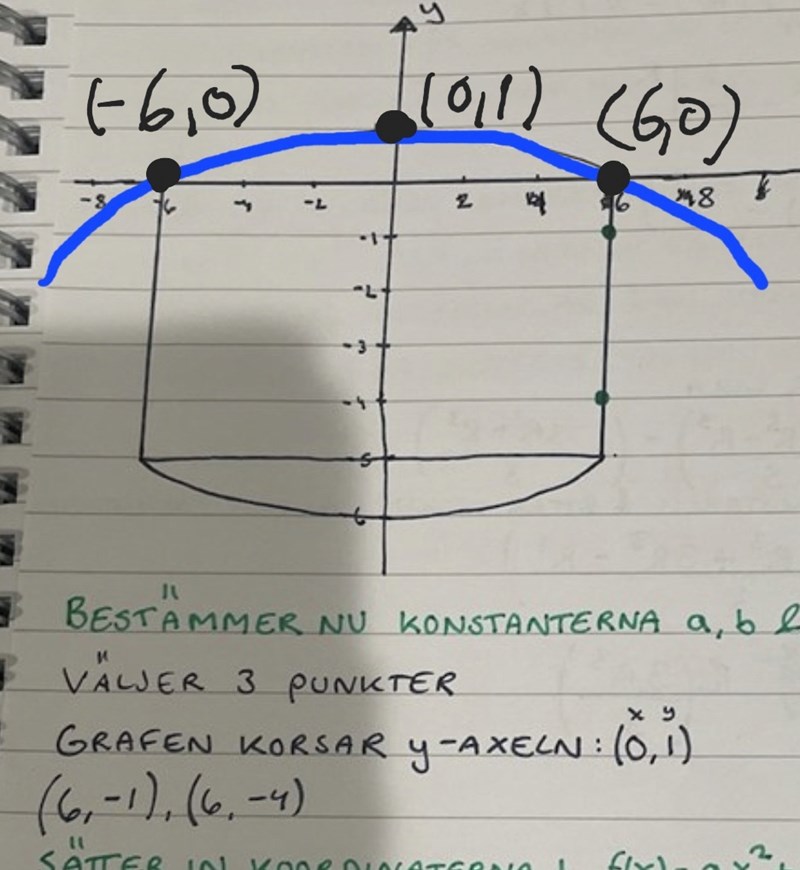 y
(-6,0) (0,1) (6,0)
-8 -6 -4 -2 2 4 6 8
-1
-2
-3
-4
-5
6
BESTÄMMER NU KONSTANTERNA a, b
VÄLJER 3 PUNKTER
x y
GRAFEN KORSAR y-AXELN: (0,1)
(6,-1), (6,-4)
SÄTTER IN KOORDINATERNA I f(x)=ax²+